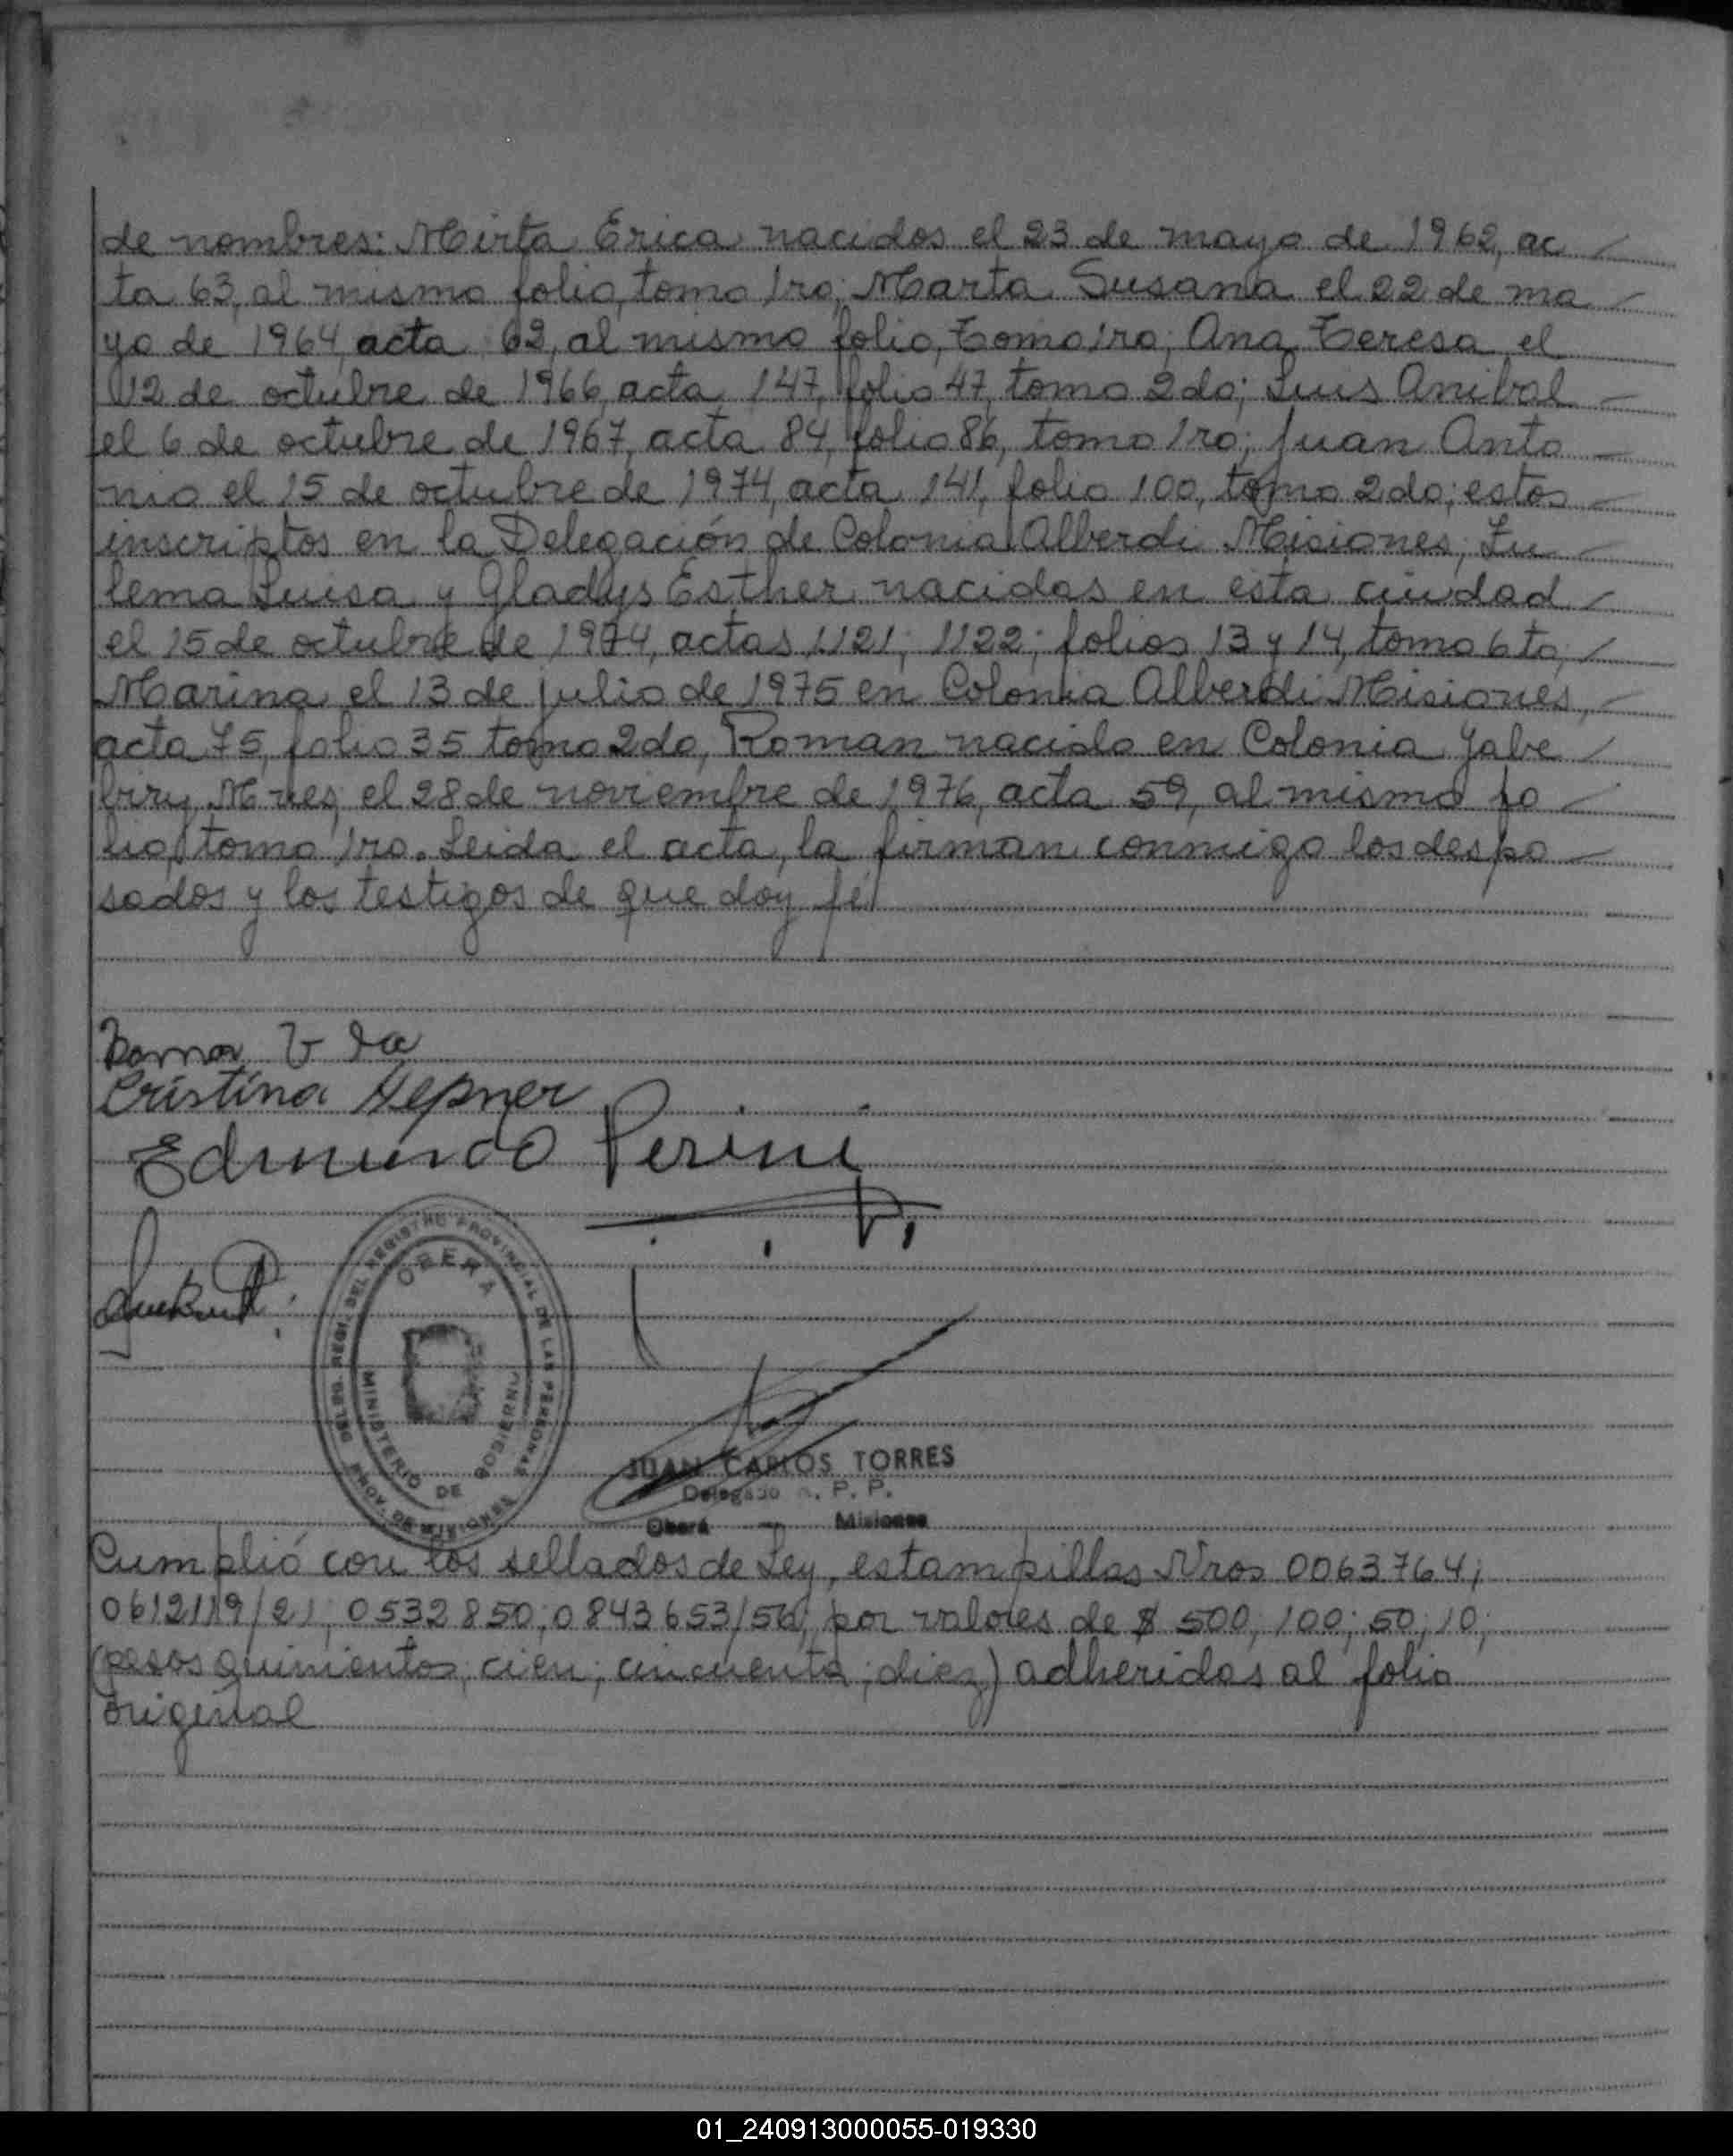 de nombres: Mirta Erica nacidos el 23 de mayo de 1962, ac
ta 63, al mismo folio, tomo 1ro; Marta Susana el 22 de ma
yo de 1964, acta 62, al mismo folio, tomo 1ro; Ana Teresa el
12 de octubre de 1966, acta 147, folio 47, tomo 2do; Luis Anibal
el 6 de octubre de 1967, acta 84, folio 86, tomo 1ro; Juan Anto
nio el 15 de octubre de 1974, acta 141, folio 100, tomo 2do; estos
inscriptos en la Delegación de Colonia Alberdi Misiones; Zu
lema Luisa y Gladys Esther nacidas en esta ciudad
el 15 de octubre de 1974, actas 1121; 1122; folios 13 y 14, tomo 6to;
Marina el 13 de julio de 1975 en Colonia Alberdi Misiones,
acta 75, folio 35 tomo 2do, Roman nacido en Colonia Yabe
biry, Mnes; el 28 de noviembre de 1976, acta 59, al mismo fo
lio, tomo 1ro. Leida el acta, la firman conmigo los despo
sados y los testigos de que doy fé
Cristina Hepner
Edmundo Perini
DELEG. REGI. DEL REGISTRO PROVINCIAL DE LAS PERSONAS
OBERA
MINISTERIO DE GOBIERNO
PROV. DE MISIONES
JUAN CARLOS TORRES
Delegado R. P. P.
Oberá - Misiones
Cumplió con los sellados de Ley, estampillas Nros 0063764;
0612119/21; 0532850; 0843653/56, por valores de $ 500; 100; 50; 10;
(pesos quinientos; cien; cincuenta; diez) adheridas al folio
original
01_240913000055-019330